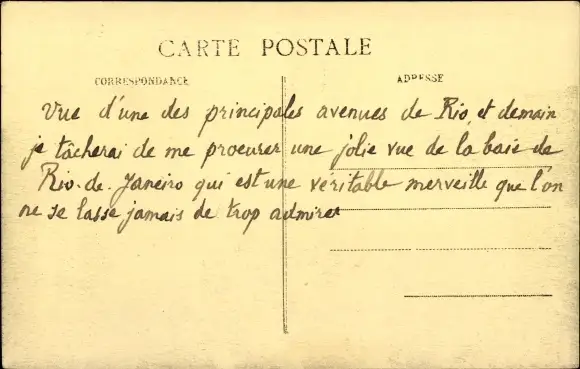 CARTE POSTALE
CORRESPONDANCE
ADRESSE
Vue d'une des principales avenues de Rio, et demain
je tâcherai de me procurer une jolie vue de la baie de
Rio-de-Janeiro qui est une véritable merveille que l'on
ne se lasse jamais de trop admirer